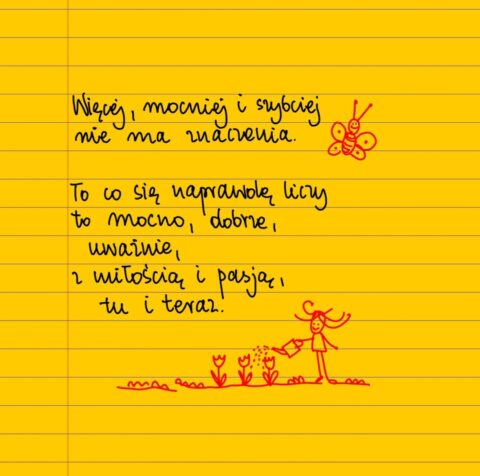 Więcej, mocniej i szybciej
nie ma znaczenia.
To co się naprawdę liczy
to mocno, dobrze,
uważnie,
z miłością i pasją,
tu i teraz.